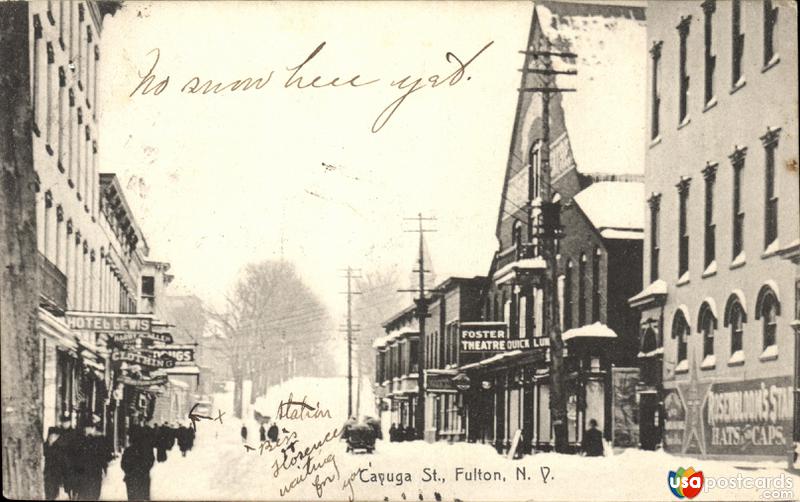 No snow here yet.
HOTEL LEWIS
CLOTHING
DRUGS
FOSTER
THEATRE QUICK LUN
ROSENBLOOM'S STAR
HATS & CAPS.
station
x
x
Florence
waiting
for you
Cayuga St., Fulton, N. Y.
usapostcards.com